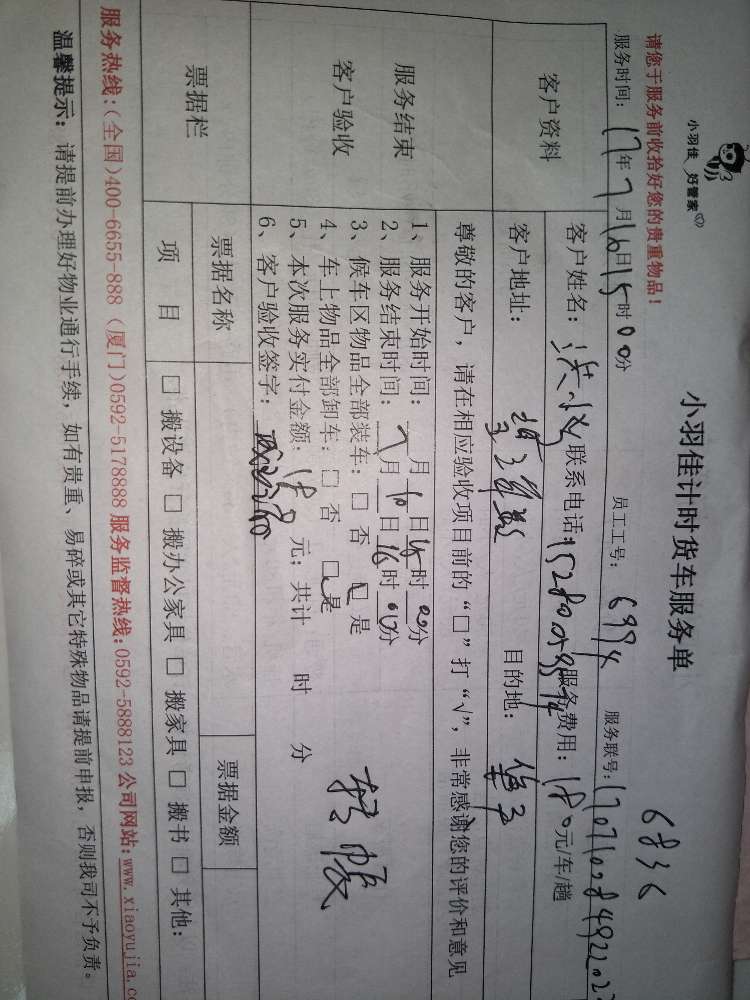 小羽佳 好管家
小羽佳计时货车服务单
6836
请您于服务前收拾好您的贵重物品!
服务时间: 17年7月16日15时00分 员工工号: 6994 服务联号:
客户资料
客户姓名: 联系电话: 服务费用: 180元/车/趟
客户地址: 目的地:
尊敬的客户，请在相应验收项目前的“□”打“√”，非常感谢您的评价和意见
服务结束
客户验收
1、服务开始时间: 7月16日15时00分
2、服务结束时间: 7月16日16时00分
3、候车区物品全部装车: □ 否 □ 是
4、车上物品全部卸车: □ 否 □ 是
5、本次服务实付金额: 180元; 共计 时 分
转帐
6、客户验收签字:
票据栏
票据名称 票据金额
项 目 □ 搬设备 □ 搬办公家具 □ 搬家具 □ 搬书 □ 其他:
服务热线:(全国)400-6655-888 (厦门)0592-5178888 服务监督热线:0592-5888123 公司网站:www.xiaoyujia.c
温馨提示: 请提前办理好物业通行手续，如有贵重、易碎或其它特殊物品请提前申报，否则我司不予负责。